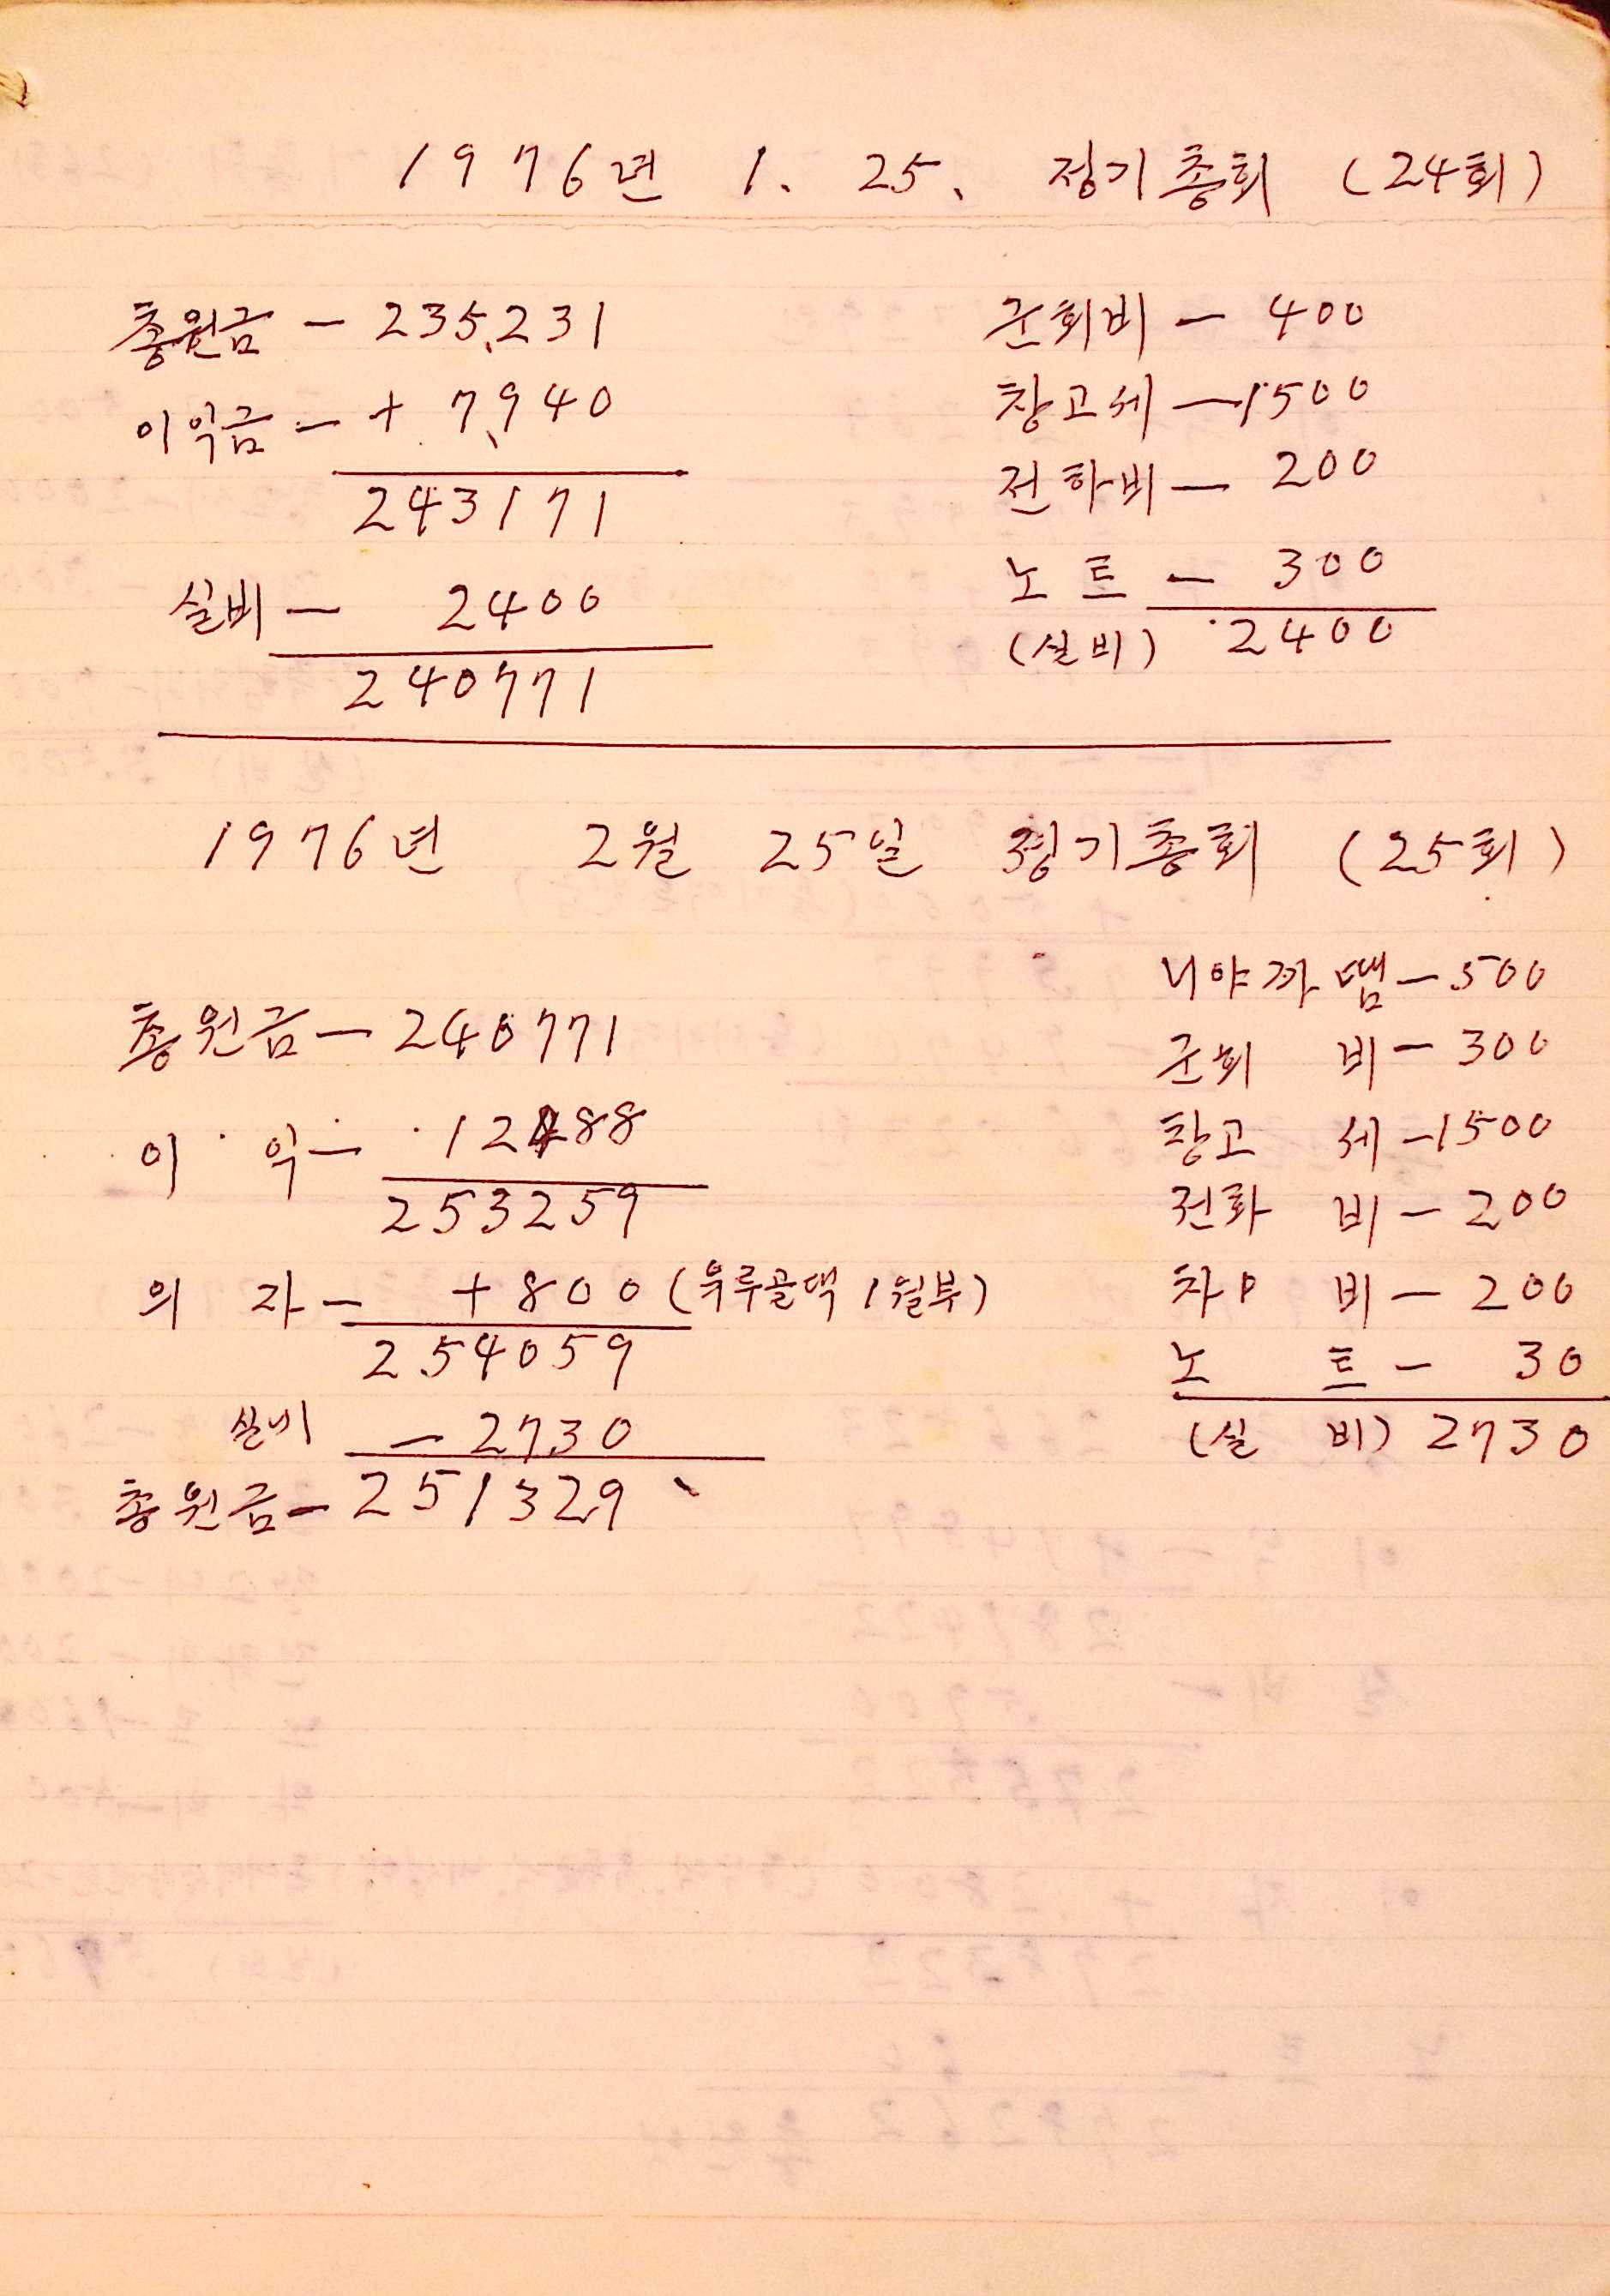 1976년 1. 25. 정기총회 (24회)
총원금 - 235,231
이익금 - + 7,940
243171
실비 - 2400
240771
군회비 - 400
창고세 - 1500
전하비 - 200
노트 - 300
(실비) 2400
1976년 2월 25일 정기총회 (25회)
총원금 - 240771
이 익 - 12488
253259
의 자 - +800 (유루골댁 1월부)
254059
실비 - 2730
총원금 - 251329
니야까땜 - 500
군회 비 - 300
창고 세 - 1500
전화 비 - 200
차 비 - 200
노 트 - 30
(실 비) 2730